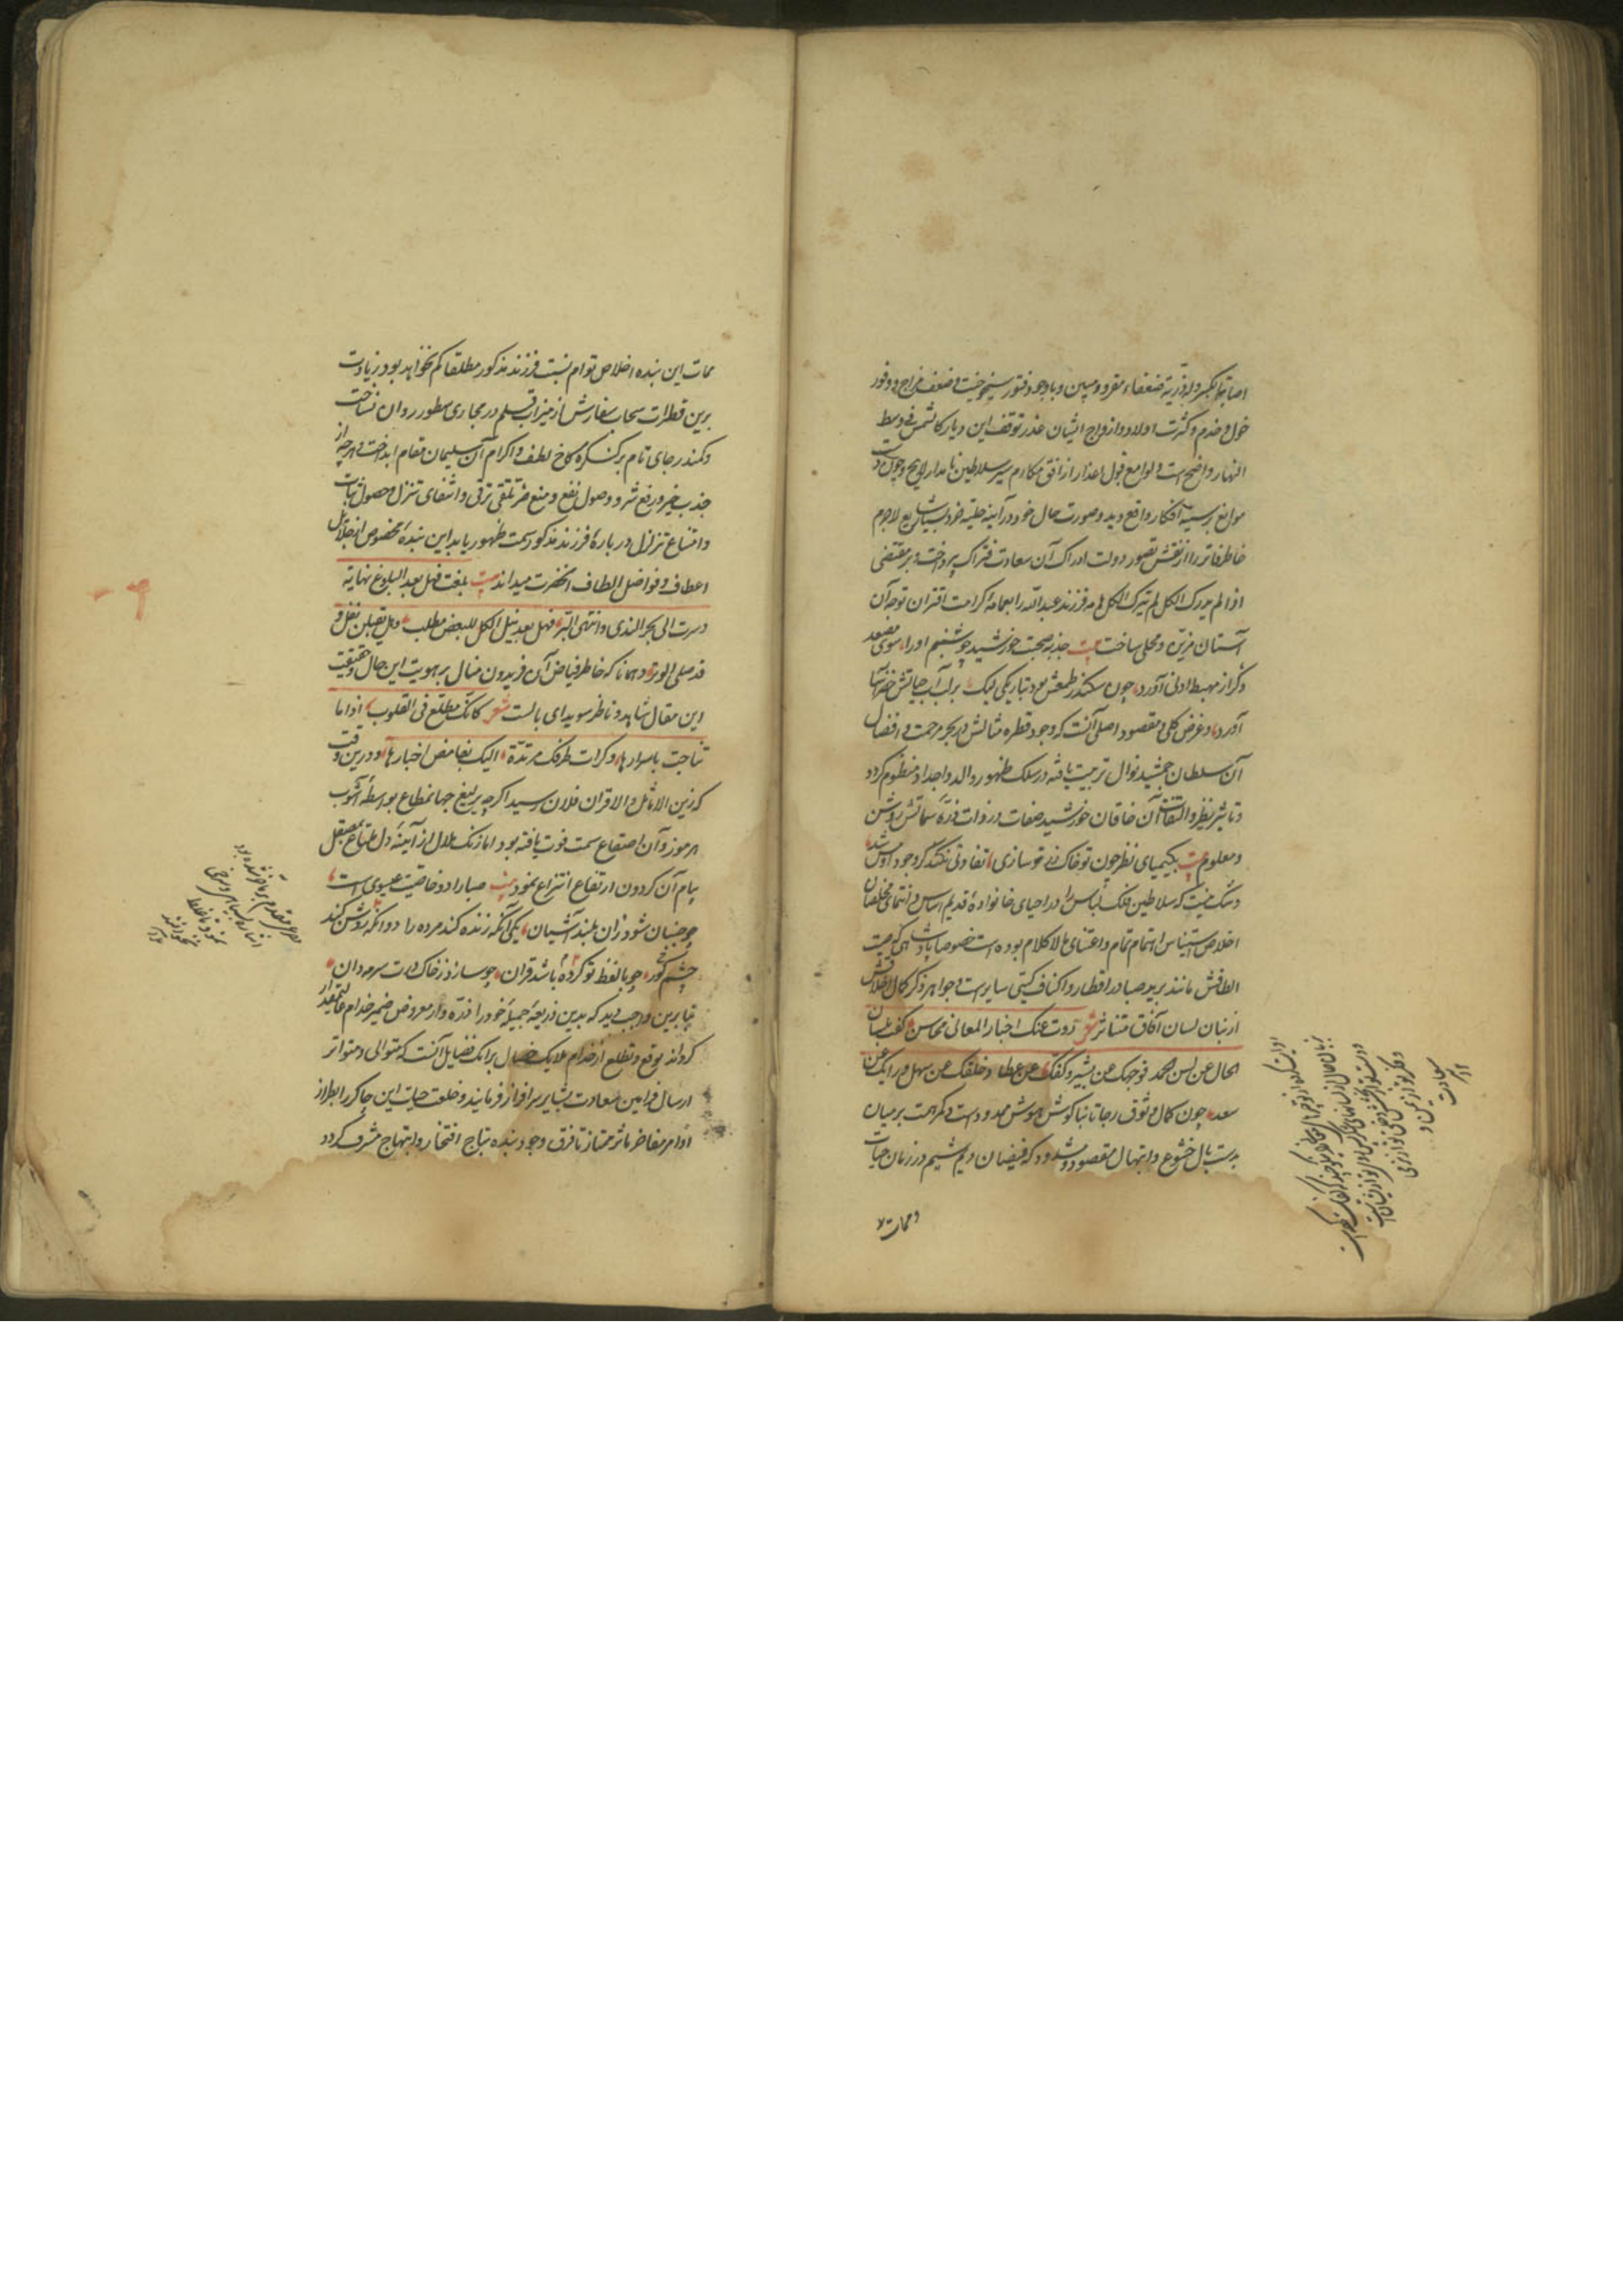 اصابه الکبر وله ذریة ضعفاء مقرر و مبین و با وجود فتور شیخوخیت و ضعف مزاج و وفور
خول و خدم و کثرت اولاد و ازواج ایشان عذر توقف این دیار کالشمس فی وسط
النهار واضح است و لوامع قبول اعذار از افق مکارم سیر سلاطین نامدار لایح و چون
موانع بر سبیل افکار واقع دید و صورت حال خود در آینه حلیه خرد لاجرم
خاطر فاتر را از نقش تصور دولت ادراک آن سعادت فتراک پرداخت و بر مقتضی
اذا لم یدرک الکل لم یترک الکل فرزند عبدالله را بعمامه کرامت اقتران توجه آن
آستان مزین و محلی ساخت بیت جذبه صحبت خورشید چو شبنم او را سوی مصعد
دگر از مهبط ادنی آورد چون سکندر طمعش بود بتاریکی لیک بر لب آب حیاتش خضر آسا
آورد و غرض کلی و مقصود اصلی آنست که وجود قطره مثالش در بحر مرحمت و افضال
آن سلطان جمشید نوال تربیت یافته در سلک ظهور والد و اجداد منظوم گردد
و تاثیر نظر و التفات آن خاقان خورشید صفات در ذات ذره سماتش روشن
و معلوم بیت بکیمیای نظر چون تو خاک زر سازی تفاوتی نکند گر وجود او مس شد
و شک نیست که سلاطین فلک لباس را در احیای خانواده قدیم اساس و انتمای مخلصان
اخلاص استیناس اهتمام تمام و اعتنای لا کلام بوده است خصوصا پادشاهی که صیت
الطافش مانند برید صبا در اقطار و اکناف گیتی سایر است و جواهر ذکر کمال اخلاقش
از بنان لسان آفاق متناثر شعر روت عنک اخبار المعالی محاسن کفت بلسان
الحال عن السن الحمد فوجهک عن بشر و کفک عن عطا و خلقک عن سهل و رایک عن
سعد چون کمال وثوق رجا تا بناگوش هوش ممدود است و کمر همت بر میان
بدست بال خشوع و ابتهال مقصود و مشدود که فیضان دیم شیم در زمان حیات
و ممات
ممات این بنده اخلاص توام نسبت فرزند مذکور مطلقا کم نخواهد بود بزیادت
برین قطرات سحاب سفارش از میزاب قلم در مجاری سطور روان نساخت
و کمند رجای تام بر کنگره کاخ لطف و اکرام آن سلیمان مقام انداخت و هر چه از
جذب خیر و رفع شر و وصول نفع و منع ضر تلقی ترقی و انتفای تنزل و حصول ثبات
و امتناع تزلزل در باره فرزند مذکور سمت ظهور یابد این بنده مخصوص از جلایل
اعطاف و فواضل الطاف آنحضرت میداند بیت بلغت فهل بعد البلوغ نهایة
و سرت الی بحر الندی و انتهی البر فهل بعد نیل الکل للبعض مطلب و هل یقبلن نفل و
قد صلی الوتر و همانا که خاطر فیاض آن فریدون منال بر هویت این حال و حقیقت
این مقال شاهد و ناظر سویدای بالست شعر کانک مطلع فی القلوب اذا ما
تناجت باسرارها و کرات طرفک مرتدة الیک بغامض اخبارها و درین وقت
که زین الاماثل و الاقران فلان رسید اگرچه یرلیغ جهانمطاع بواسطه آشوب
هرموز و آن اصقاع سمت فوت یافته بود اما زنک ملال از آینه دل ملتاع بمصقل
پیام آن گردون ارتفاع انتزاع نمود بیت صبا را دو خاصیت عیسوی است
چو جنبان شود زان بلند آشیان یکی آنکه زنده کند مرده را دو آنکه روشن کند
چشم کور چو با لفظ تو کرده باشد قران چو سازد ز خاک درت سرمه دان
بنا برین واجب دید که بدین ذریعه جمیله خود را ذره وار معروض ضمیر خدام
گرداند توقع و تطلع از خدام ملایک خصال برانک فضایل آنست که متوالی و متواتر
ارسال فرامین سعادت بشایر سرافراز فرمایند و خلعت حیات این چاکر را بطراز
اوامر مفاخر مآثر ممتاز تا فرق وجود بنده بتاج افتخار و ابتهاج مشرف گردد